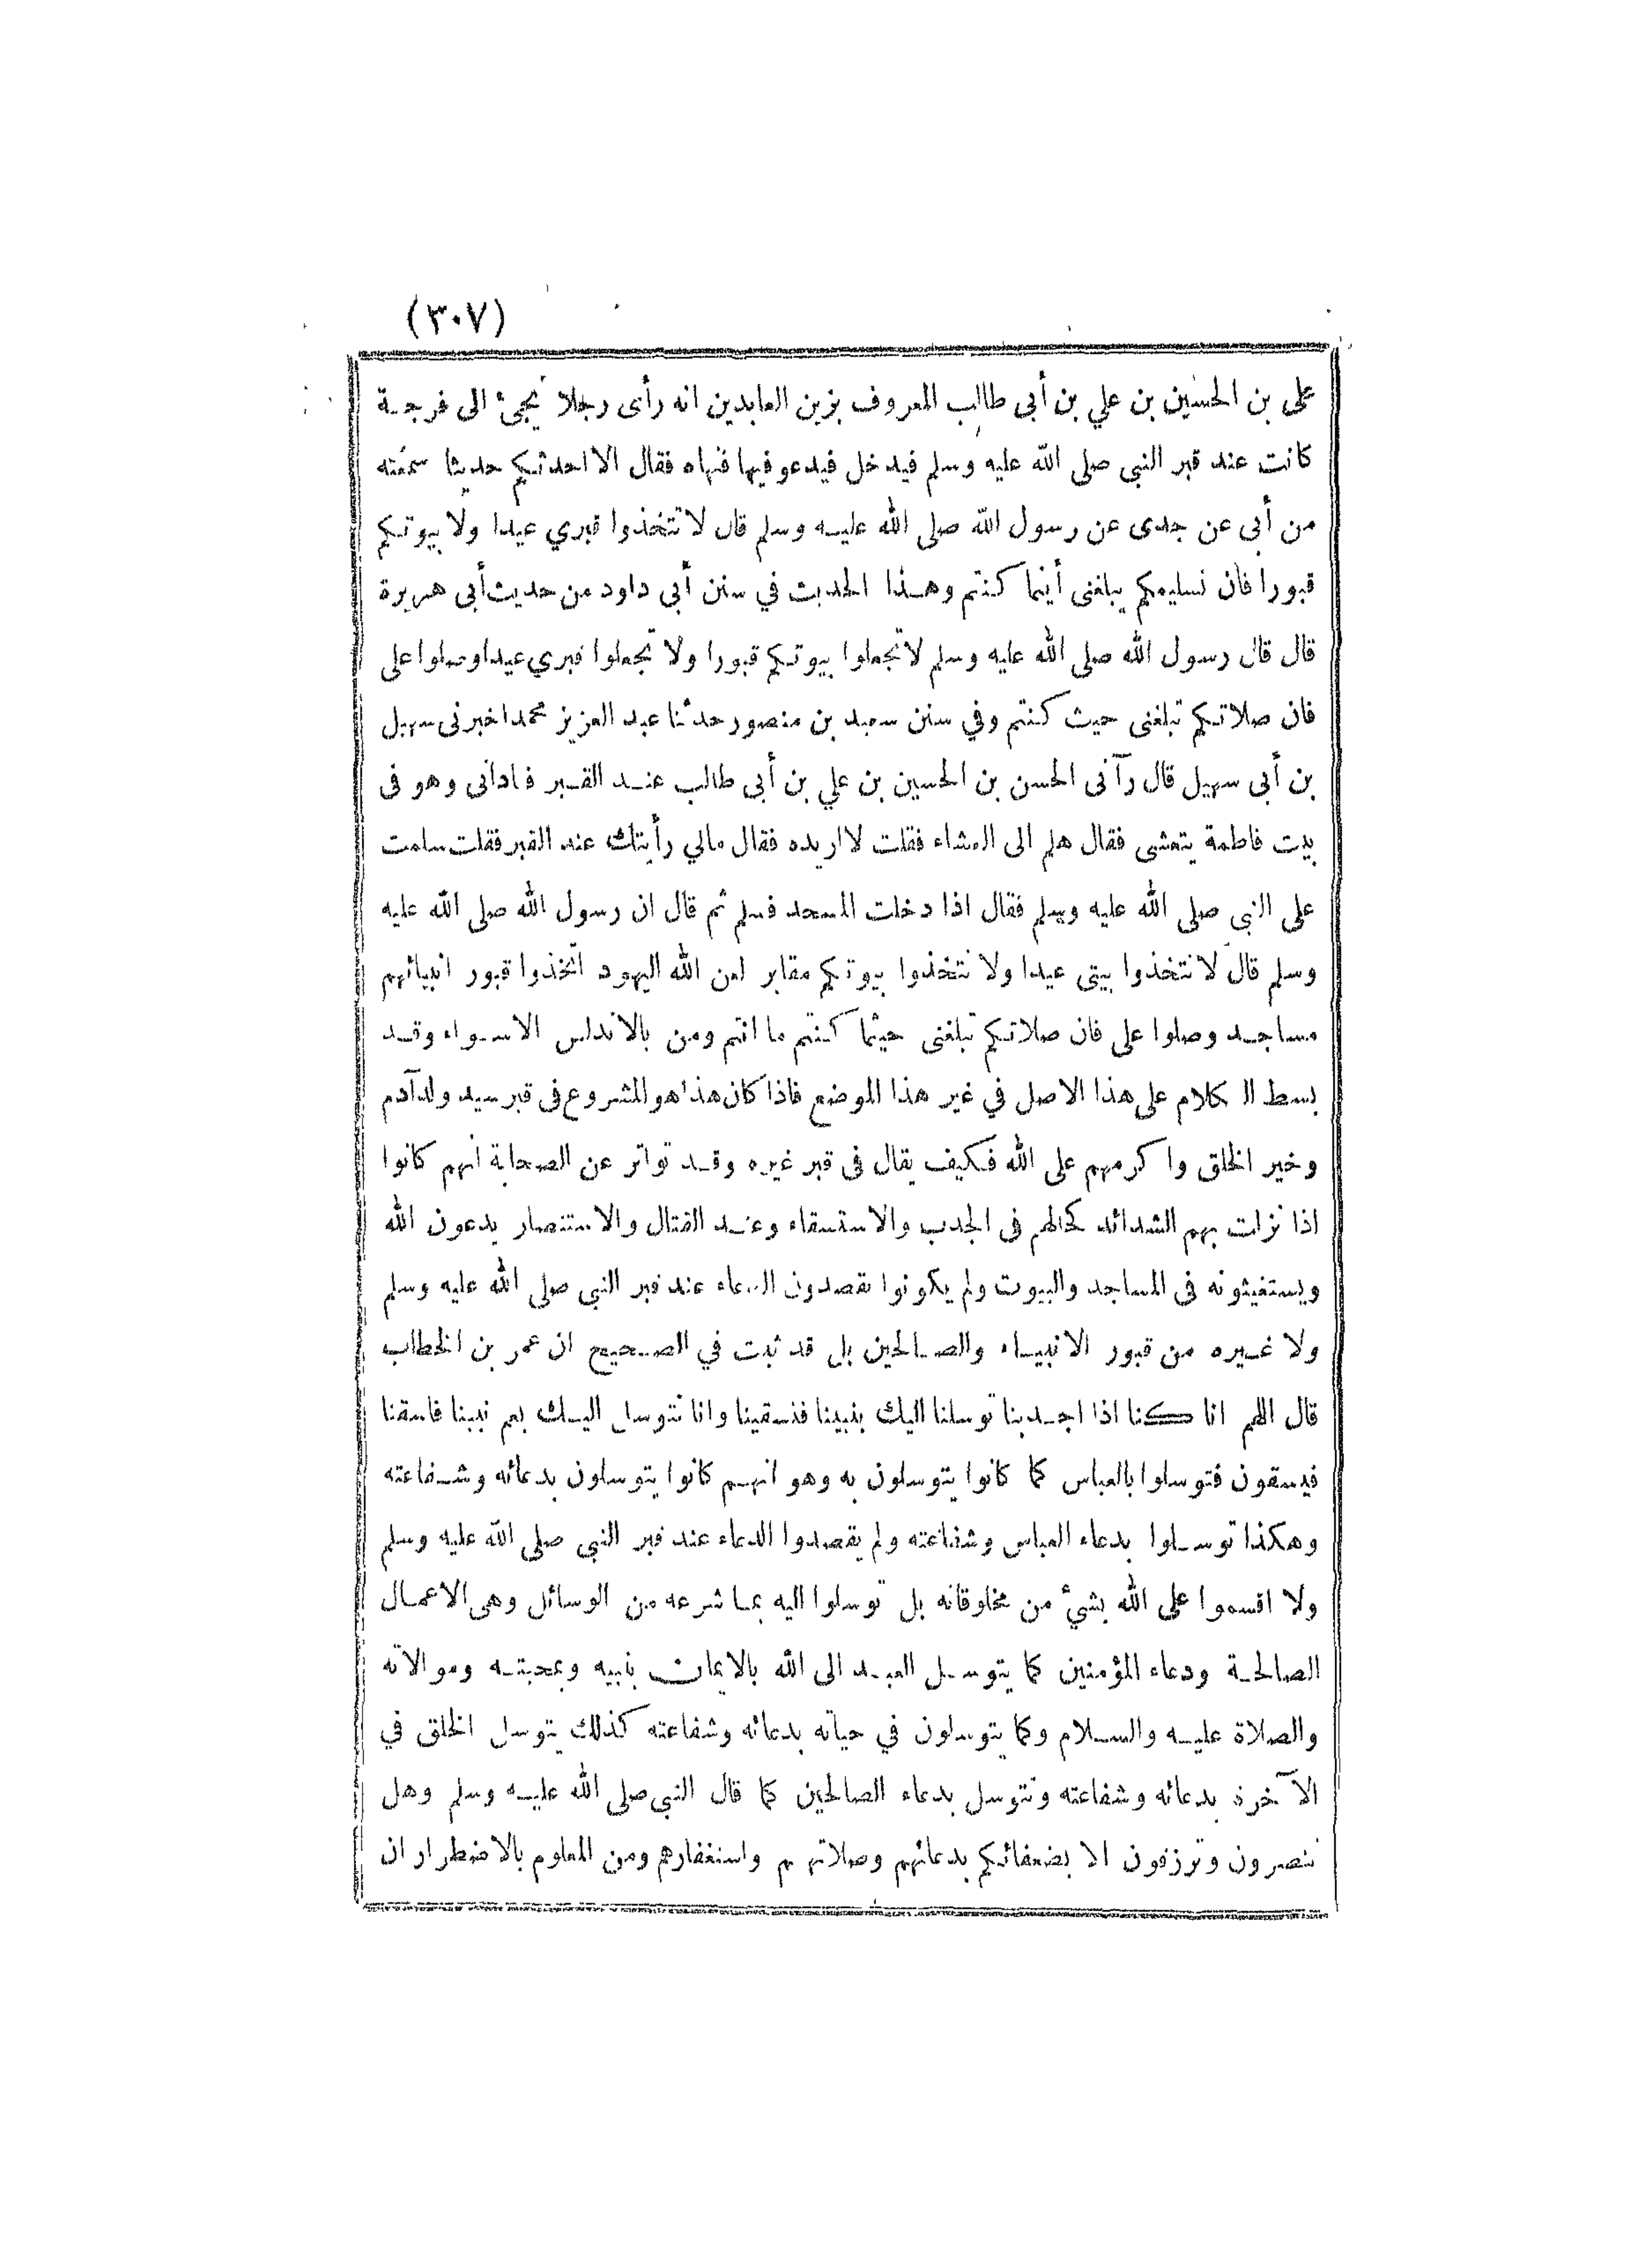 (٣٠٧)
على بن الحسين بن علي بن أبى طالب المعروف بزين العابدين انه رأى رجلا يجئ الى فرجة
كانت عند قبر النبى صلى الله عليه وسلم فيدخل فيدعو فيها فنهاه فقال الا احدثكم حديثا سمعته
من أبى عن جدى عن رسول الله صلى الله عليه وسلم قال لا تتخذوا قبري عيدا ولا بيوتكم
قبورا فان تسليمكم يبلغنى أينما كنتم وهذا الحديث في سنن أبى داود من حديث أبى هريرة
قال قال رسول الله صلى الله عليه وسلم لا تجعلوا بيوتكم قبورا ولا تجعلوا قبري عيدا وصلوا على
فان صلاتكم تبلغنى حيث كنتم وفي سنن سعيد بن منصور حدثنا عبد العزيز محمد اخبرنى سهيل
بن أبى سهيل قال رآنى الحسن بن الحسين بن علي بن أبي طالب عند القبر فادانى وهو فى
بيت فاطمة يتعشى فقال هلم الى العشاء فقلت لا اريده فقال مالي رأيتك عند القبر فقلت سلمت
على النبى صلى الله عليه وسلم فقال اذا دخلت المسجد فسلم ثم قال ان رسول الله صلى الله عليه
وسلم قال لا تتخذوا بيتى عيدا ولا تتخذوا بيوتكم مقابر لعن الله اليهود اتخذوا قبور انبيائهم
مساجد وصلوا على فان صلاتكم تبلغنى حيثما كنتم ما انتم ومن بالاندلس الا سواء وقد
بسط الكلام على هذا الاصل في غير هذا الموضع فاذا كان هذا هو المشروع فى قبر سيد ولد آدم
وخير الخلق واكرمهم على الله فكيف يقال فى قبر غيره وقد تواتر عن الصحابة أنهم كانوا
اذا نزلت بهم الشدائد كحالهم فى الجدب والاستسقاء وعند القتال والاستنصار يدعون الله
ويستغيثونه فى المساجد والبيوت ولم يكونوا يقصدون الدعاء عند قبر النبي صلى الله عليه وسلم
ولا غيره من قبور الانبياء والصالحين بل قد ثبت في الصحيح ان عمر بن الخطاب
قال اللهم انا كنا اذا اجدبنا توسلنا اليك بنبينا فتسقينا وانا نتوسل اليك بعم نبينا فاسقنا
فيسقون فتوسلوا بالعباس كما كانوا يتوسلون به وهو انهم كانوا يتوسلون بدعائه وشفاعته
وهكذا توسلوا بدعاء العباس وشفاعته ولم يقصدوا الدعاء عند قبر النبي صلى الله عليه وسلم
ولا اقسموا على الله بشئ من مخلوقاته بل توسلوا اليه بما شرعه من الوسائل وهى الاعمال
الصالحة ودعاء المؤمنين كما يتوسل العبد الى الله بالايمان بنبيه وبمحبته وموالاته
والصلاة عليه والسلام وكما يتوسلون في حياته بدعائه وشفاعته كذلك يتوسل الخلق في
الآخرة بدعائه وشفاعته ونتوسل بدعاء الصالحين كما قال النبي صلى الله عليه وسلم وهل
تنصرون وترزقون الا بضعفائكم بدعائهم وصلاتهم واستغفارهم ومن المعلوم بالاضطرار ان